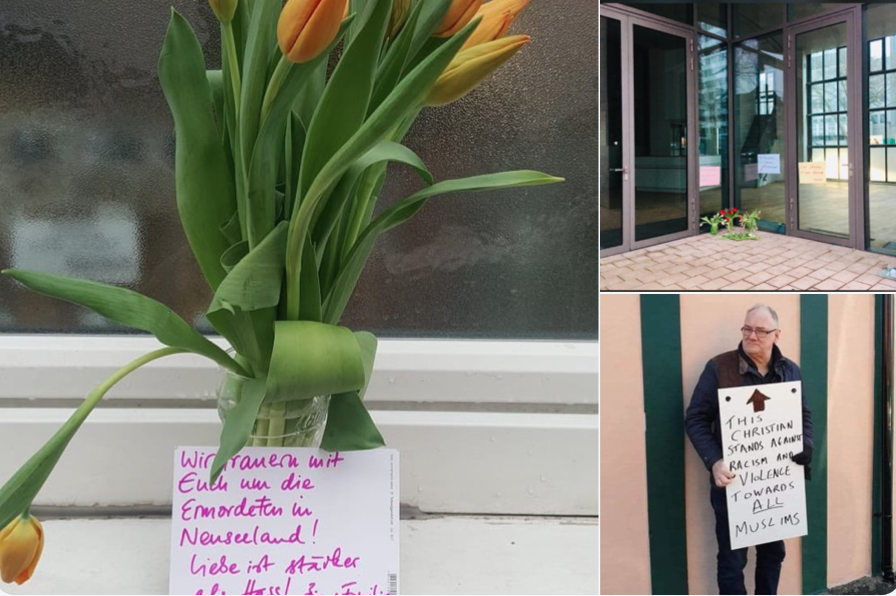 Wir trauern mit
Euch um die
Ermordeten in
Neuseeland!
Liebe ist stärker
als Hass!
THIS
CHRISTIAN
STANDS AGAINST
RACISM AND
VIOLENCE
TOWARDS
ALL
MUSLIMS